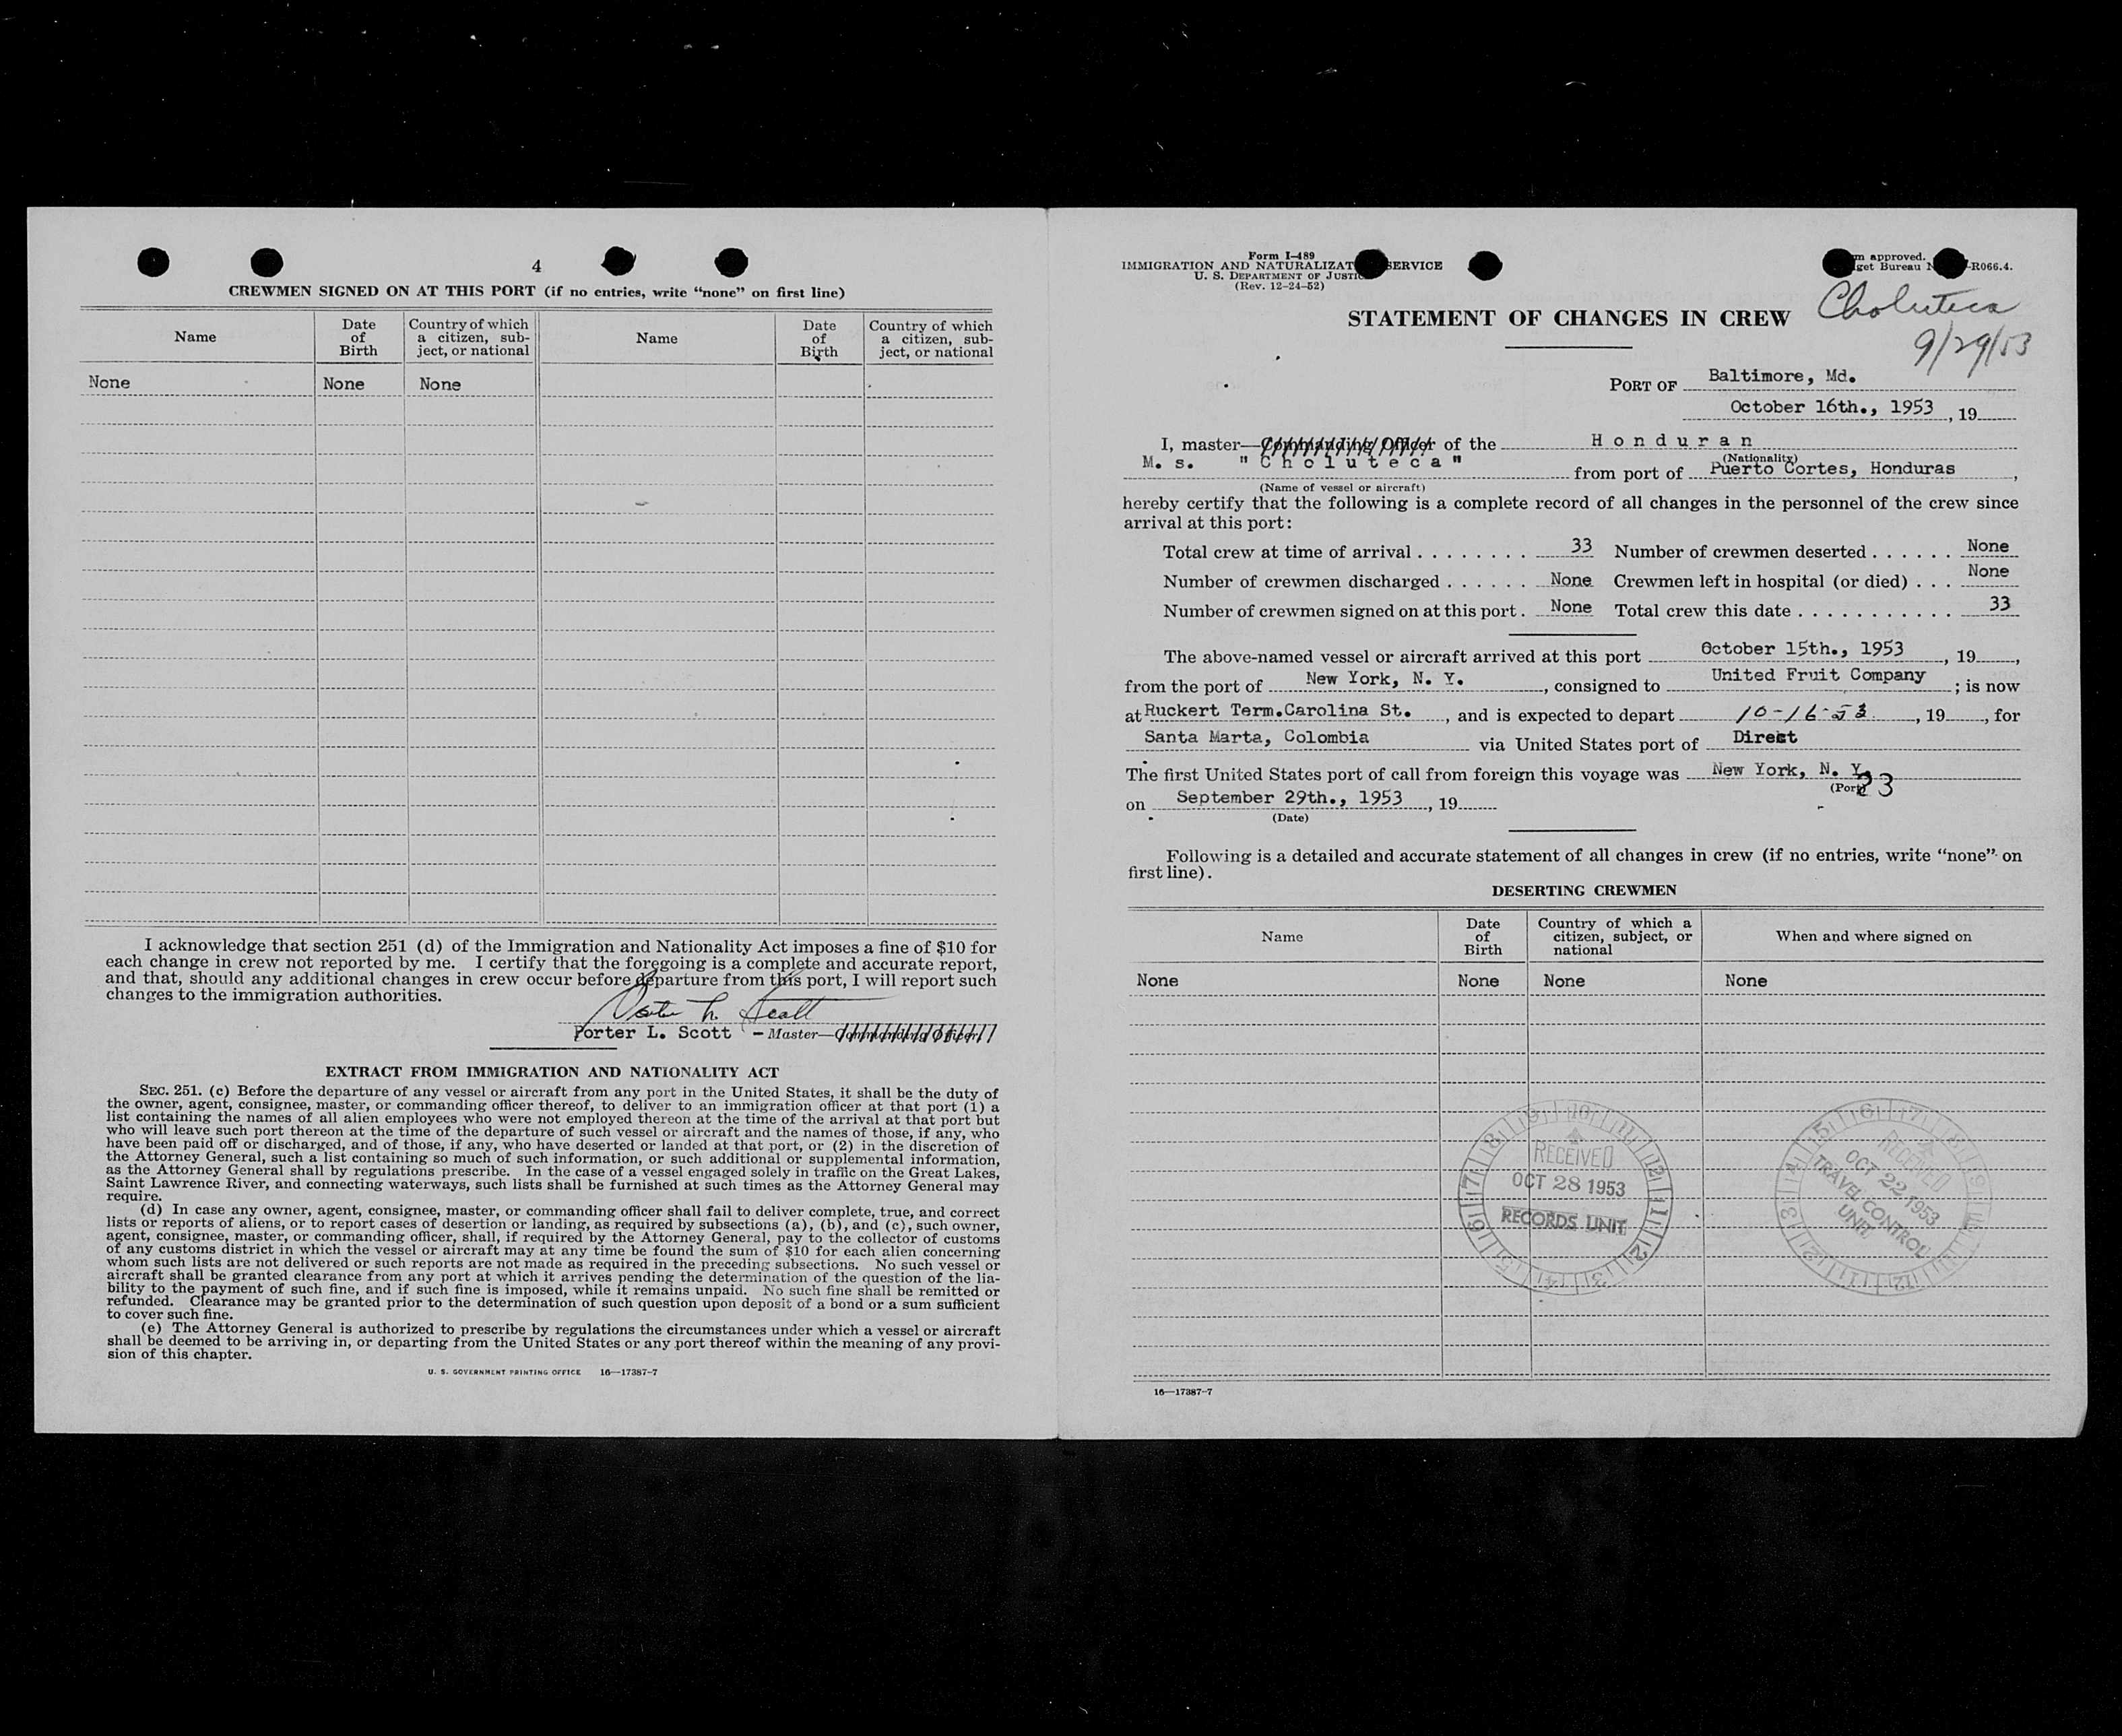 4
CREWMEN SIGNED ON AT THIS PORT (if no entries, write “none” on first line)
Name Date of Birth Country of which a citizen, subject, or national Name Date of Birth Country of which a citizen, subject, or national
None None None
I acknowledge that section 251 (d) of the Immigration and Nationality Act imposes a fine of $10 for
each change in crew not reported by me. I certify that the foregoing is a complete and accurate report,
and that, should any additional changes in crew occur before departure from this port, I will report such
changes to the immigration authorities.
Porter L. Scott
Porter L. Scott - Master—Commanding Officer.
EXTRACT FROM IMMIGRATION AND NATIONALITY ACT
SEC. 251. (c) Before the departure of any vessel or aircraft from any port in the United States, it shall be the duty of
the owner, agent, consignee, master, or commanding officer thereof, to deliver to an immigration officer at that port (1) a
list containing the names of all alien employees who were not employed thereon at the time of the arrival at that port but
who will leave such port thereon at the time of the departure of such vessel or aircraft and the names of those, if any, who
have been paid off or discharged, and of those, if any, who have deserted or landed at that port, or (2) in the discretion of
the Attorney General, such a list containing so much of such information, or such additional or supplemental information,
as the Attorney General shall by regulations prescribe. In the case of a vessel engaged solely in traffic on the Great Lakes,
Saint Lawrence River, and connecting waterways, such lists shall be furnished at such times as the Attorney General may
require.
(d) In case any owner, agent, consignee, master, or commanding officer shall fail to deliver complete, true, and correct
lists or reports of aliens, or to report cases of desertion or landing, as required by subsections (a), (b), and (c), such owner,
agent, consignee, master, or commanding officer, shall, if required by the Attorney General, pay to the collector of customs
of any customs district in which the vessel or aircraft may at any time be found the sum of $10 for each alien concerning
whom such lists are not delivered or such reports are not made as required in the preceding subsections. No such vessel or
aircraft shall be granted clearance from any port at which it arrives pending the determination of the question of the lia-
bility to the payment of such fine, and if such fine is imposed, while it remains unpaid. No such fine shall be remitted or
refunded. Clearance may be granted prior to the determination of such question upon deposit of a bond or a sum sufficient
to cover such fine.
(e) The Attorney General is authorized to prescribe by regulations the circumstances under which a vessel or aircraft
shall be deemed to be arriving in, or departing from the United States or any port thereof within the meaning of any provi-
sion of this chapter.
U. S. GOVERNMENT PRINTING OFFICE 16—17387-7
Form I-489
IMMIGRATION AND NATURALIZAT SERVICE
U. S. DEPARTMENT OF JUSTIC
(Rev. 12-24-52)
m approved.
get Bureau N -R066.4.
Choluteca
9/29/53
STATEMENT OF CHANGES IN CREW
PORT OF Baltimore, Md.
October 16th., 1953, 19
I, master—Commanding Officer of the Honduran
(Nationality)
M. s. "Choluteca" from port of Puerto Cortes, Honduras,
(Name of vessel or aircraft)
hereby certify that the following is a complete record of all changes in the personnel of the crew since
arrival at this port:
Total crew at time of arrival 33 Number of crewmen deserted None
Number of crewmen discharged None Crewmen left in hospital (or died) None
Number of crewmen signed on at this port None Total crew this date 33
The above-named vessel or aircraft arrived at this port October 15th., 1953, 19,
from the port of New York, N. Y., consigned to United Fruit Company; is now
at Ruckert Term.Carolina St., and is expected to depart 10-16-53, 19, for
Santa Marta, Colombia via United States port of Direct
The first United States port of call from foreign this voyage was New York, N. Y.
(Port) 23
on September 29th., 1953, 19
(Date)
Following is a detailed and accurate statement of all changes in crew (if no entries, write “none” on
first line).
DESERTING CREWMEN
Name Date of Birth Country of which a citizen, subject, or national When and where signed on
None None None None
RECEIVED
OCT 28 1953
RECORDS UNIT
RECEIVED
OCT 22 1953
TRAVEL CONTROL
UNIT
16—17387-7